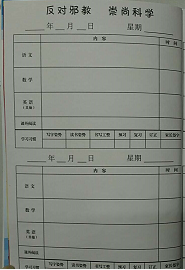 反对邪教 崇尚科学
年 月 日 星期
内容 时间
语文
数学
英语
(其他)
课外阅读
学习习惯 写字姿势 读书姿势 书写工整 预习 复习 订正
年 月 日 星期
内容 时间
语文
数学
英语
(其他)
课外阅读
学习习惯 写字姿势 读书姿势 书写工整 预习 复习 订正